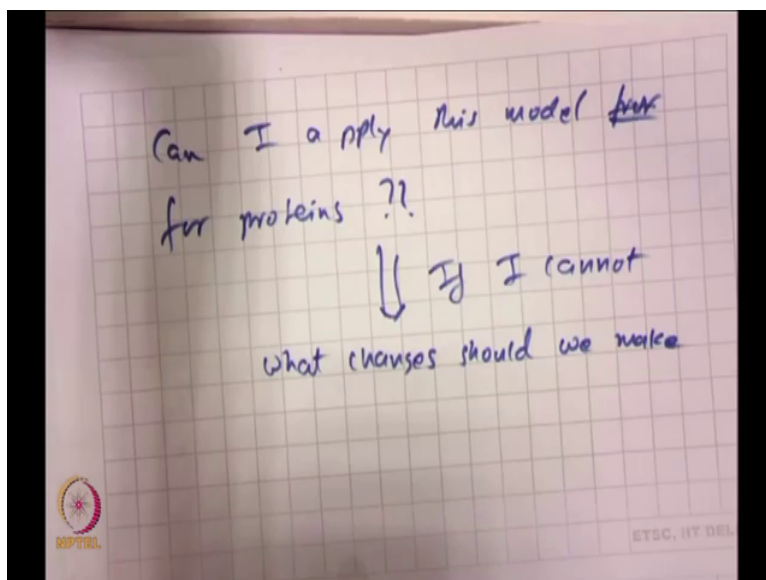 Can I apply this model for
for proteins ??
If I cannot
what changes should we make
NPTEL
ETSC, IIT DEL